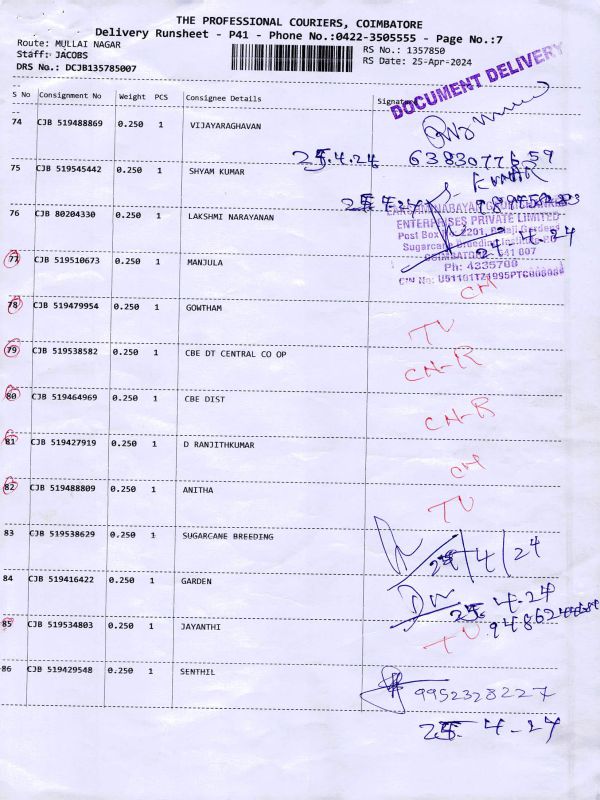 THE PROFESSIONAL COURIERS, COIMBATORE
Delivery Runsheet - P41 - Phone No.:0422-3505555 - Page No.:7
Route: MULLAI NAGAR RS No.: 1357850
Staff: JACOBS RS Date: 25-Apr-2024
DRS No.: DCJB135785007
DOCUMENT DELIVERY
S No Consignment No Weight PCS Consignee Details Signature
74 CJB 519488869 0.250 1 VIJAYARAGHAVAN
25.4.24 6383077659
75 CJB 519545442 0.250 1 SHYAM KUMAR
KUMAR
76 CJB 80204330 0.250 1 LAKSHMI NARAYANAN
ENTERPRISES PRIVATE LIMITED
Post Box
Sugarcane Breeding
24.4.24
COIMBATORE 641 007
Ph: 4335700
77 CJB 519510673 0.250 1 MANJULA
CIN No:
CH
78 CJB 519479954 0.250 1 GOWTHAM
TU
79 CJB 519538582 0.250 1 CBE DT CENTRAL CO OP
CN-R
80 CJB 519464969 0.250 1 CBE DIST
CN-R
81 CJB 519427919 0.250 1 D RANJITHKUMAR
CH
82 CJB 519488809 0.250 1 ANITHA
TU
83 CJB 519538629 0.250 1 SUGARCANE BREEDING
25/4/24
84 CJB 519416422 0.250 1 GARDEN
25.4.24
85 CJB 519534803 0.250 1 JAYANTHI
TU
86 CJB 519429548 0.250 1 SENTHIL
9952328227
25-4-24